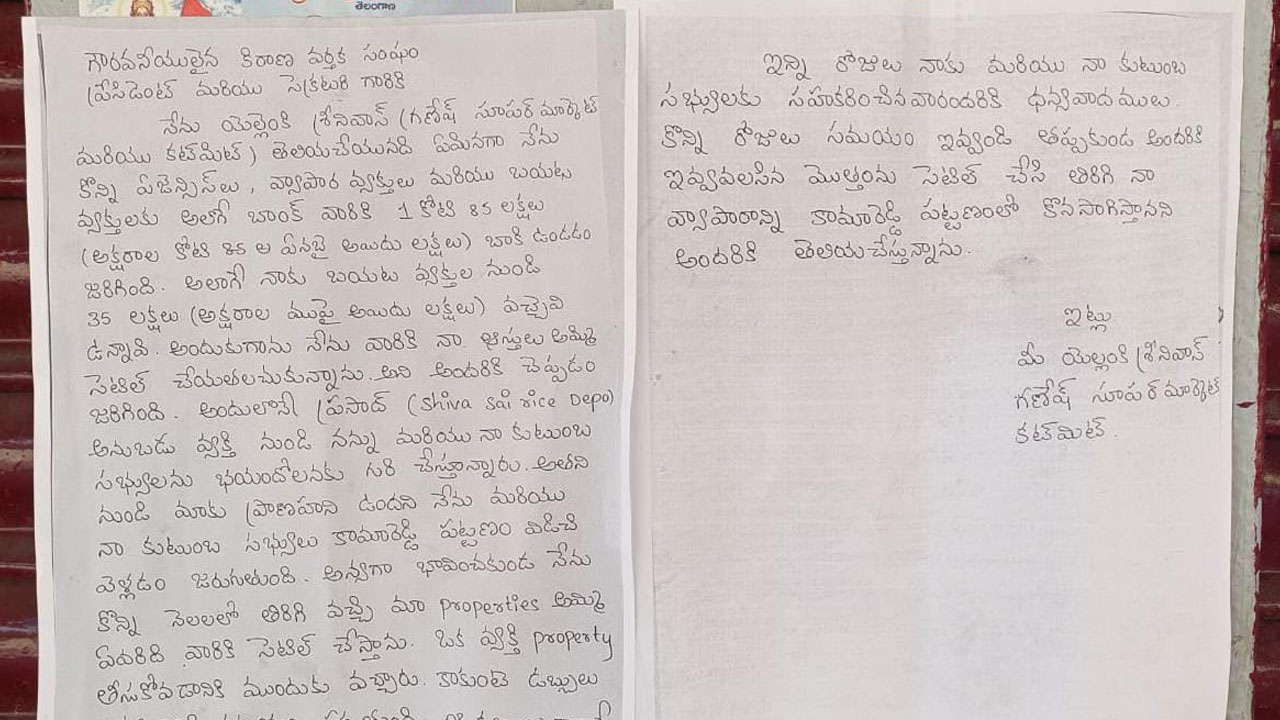 తెలంగాణ
గౌరవనీయులైన కిరాణ వర్తక సంఘం
ప్రేసిడెంట్ మరియు సెక్రటరి గారికి
నేను యెల్లెంకి శ్రీనివాస్ (గణేష్ సూపర్ మార్కెట్
మరియు కట్‌మిట్) తెలియచేయునది ఏమినగా నేను
కొన్ని ఏజెన్సిస్‌లు, వ్యాపార వ్యక్తులు మరియు బయట
వ్యక్తులకు అలాగే బాంక్ వారికి 1 కోటి 85 లక్షలు
(అక్షరాల కోటి 85 ల ఏనబై అయిదు లక్షలు) బాకి ఉండడం
జరిగింది. అలాగే నాకు బయట వ్యక్తుల నుండి
35 లక్షలు (అక్షరాల ముపై అయిదు లక్షలు) వచ్చెవి
ఉన్నావి. అందుకుగాను నేను వారికి నా ఆస్తులు అమ్మి
సెటిల్ చేయతలచుకున్నాను. అని అందరికి చెప్పడం
జరిగింది. అందులోని ప్రసాద్ (Shiva Sai rice Depo)
అనుబడు వ్యక్తి నుండి నన్ను మరియు నా కుటుంబ
సభ్యులను భయందోలనకు గురి చేస్తూన్నారు. అతని
నుండి మాకు ప్రాణహాని ఉందని నేను మరియు
నా కుటుంబ సభ్యులు కామారెడ్డి పట్టణం విడిచి
వెళ్లడం జరుగుతుంది. అన్యగా భావించకుండ నేను
కొన్ని నెలలలో తిరిగి వచ్చి మా properties అమ్మి
ఏవరిది వారికి సెటిల్ చేస్తాను. ఒక వ్యక్తి property
తీసుకోవడానికి ముందుకు వచ్చారు. కాకుంటె డబ్బులు
ఇన్ని రోజులు నాకు మరియు నా కుటుంబ
సభ్యులకు సహకరించిన వారందరికి ధన్యవాదములు.
కొన్ని రోజులు సమయం ఇవ్వండి తప్పుకుండ అందరికి
ఇవ్వవలసిన మొత్తంను సెటిల్ చేసి తిరిగి నా
వ్యాపారాన్ని కామారెడ్డి పట్టణంలో కొనసాగిస్తానని
అందరికి తెలియచేస్తున్నాను.
ఇట్లు
మీ యెల్లంకి శ్రీనివాస్
గణేష్ సూపర్ మార్కెట్
కట్‌మిట్.